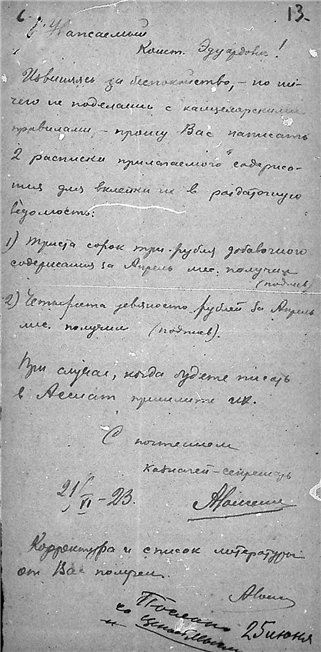 13.
Уважаемый
Конст. Эдуардович!
Извиняясь за беспокойство, – но ни-
чего не поделаешь с канцелярскими
правилами, – прошу Вас написать
2 расписки прилагаемого содержа-
ния для вклейки их в раздаточную
ведомость:
1) Триста сорок три рубля добавочного
содержания за Апрель мес. получил
(подпись)
2) Четыреста девяносто рублей за Апрель
мес. получил (подпись).
При случае, когда будете писать
в Ассиат пришлите их.
С почтением
казначей-секретарь
21/VI – 23.
Корректура и список литературы
от Вас получен.
Послано
25 июня